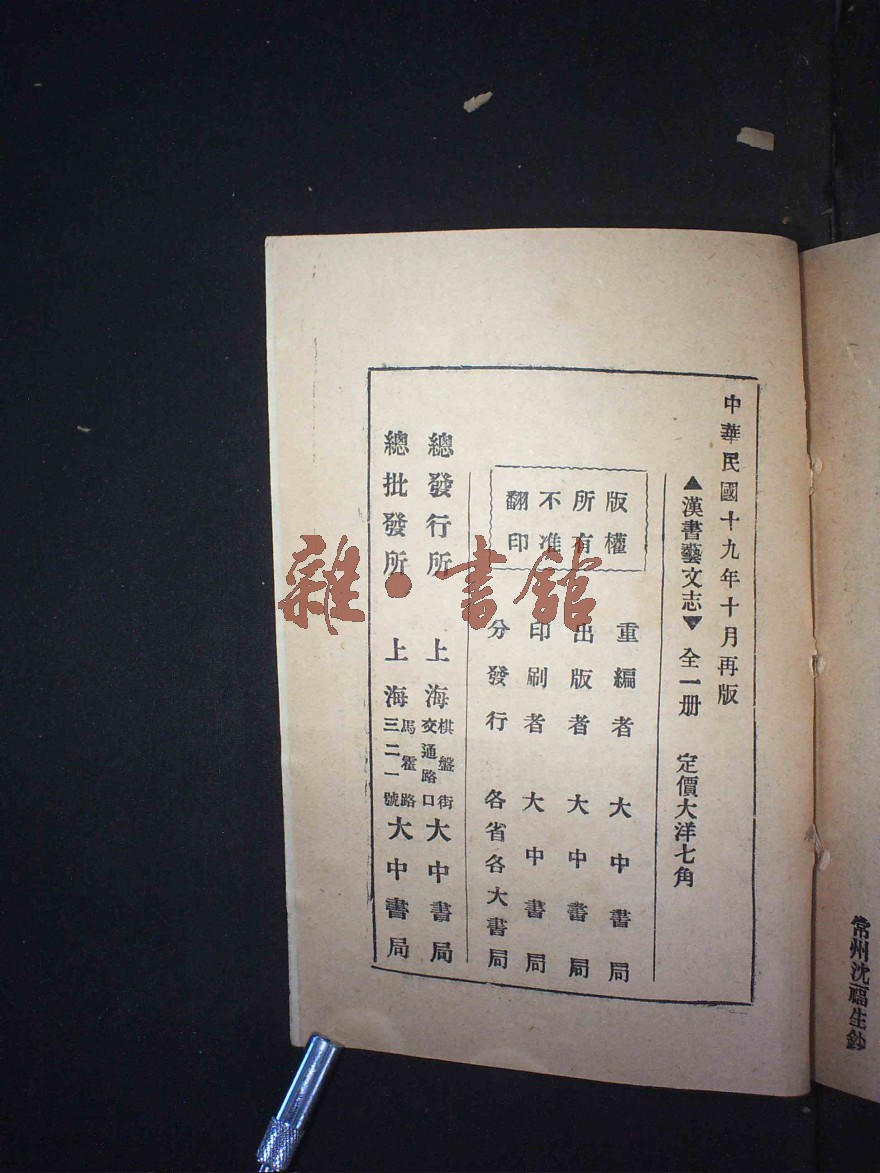 常州沈福生鈔
中華民國十九年十月再版
▲漢書藝文志▼ 全一册 定價大洋七角
版權
所有
不准
翻印
重編者 大中書局
出版者 大中書局
印刷者 大中書局
分發行 各省各大書局
總發行所 上海棋盤街交通路口大中書局
總批發所 上海馬霍路三二一號大中書局
雜·書館